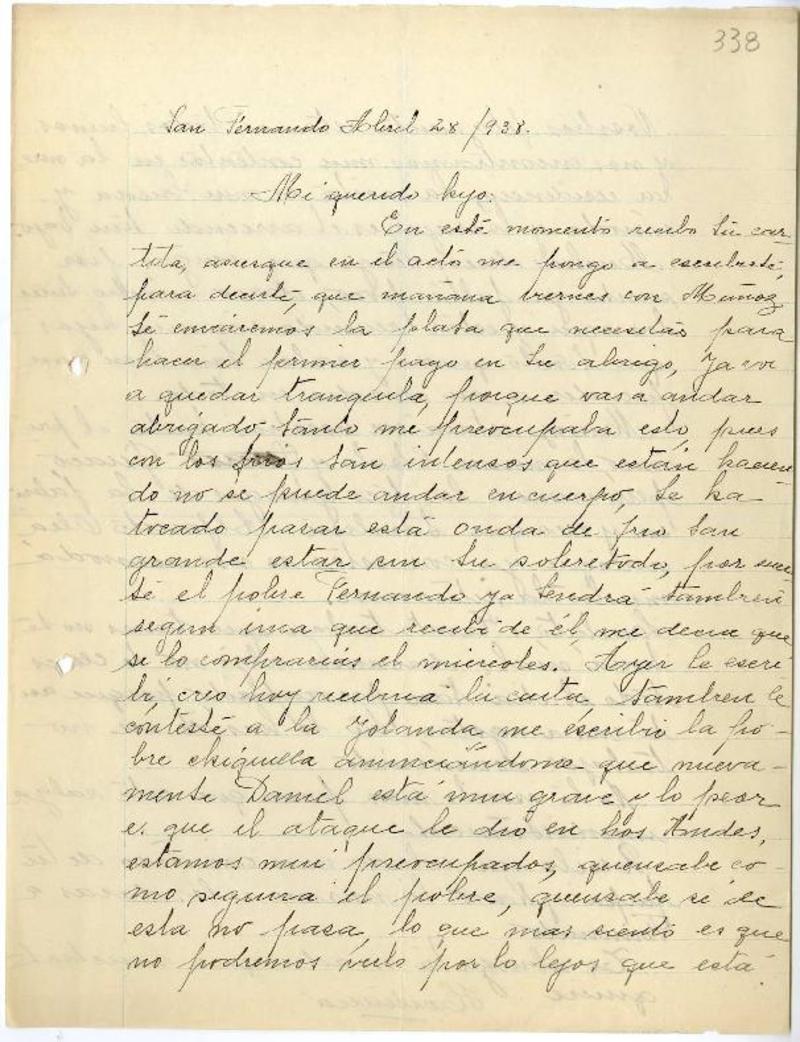 338
San Fernando Abril 28/938.
Mi querido hijo:
En esté momento recibo tu car-
tita, asiesque en el actó me pongo a escribirté,
para decirté, que mañana viernes con Muñoz
té enviaremos la plata que necesitas para
hacer el primer pago en tu abrigo, ya voi
a quedar tranquila, porque vas a andar
abrigado, tánto me preocupaba esto, pues
con los frios tán intensos que están hacien-
do no se puede andar en cuerpo, te ha
tocado pasar está onda de frio tan
grande estar sin tu sobretodo, por suer-
té el pobre Fernando ya tendrá tambien
segun una que recibi de él, me decia que
se lo comprarias el miercoles. Ayer le escri-
bi, creo hoy recibira la carta, tambien le
contesté a la Yolanda me escribio la po-
bre chiquilla anunciándome que nueva-
mente Daniel está mui grave y lo peor
es que el ataque le dio en los Andes,
estamos mui preocupados, quensabe co-
mo seguira el pobre, quensabe si de
esta no pasa, lo que mas siento es que
no podremos verlo por lo lejos que está